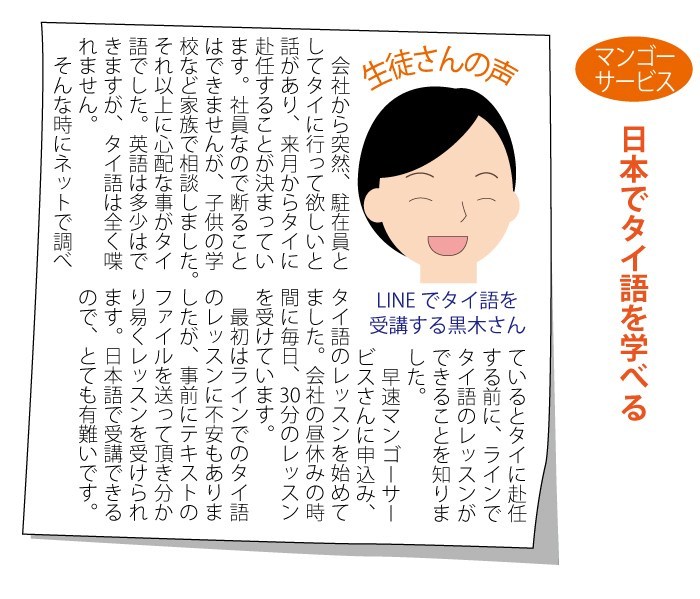 マンゴー
サービス
日本でタイ語を学べる
生徒さんの声
会社から突然、駐在員と
してタイに行って欲しいと
話があり、来月からタイに
赴任することが決まってい
ます。社員なので断ること
はできませんが、子供の学
校など家族で相談しました。
それ以上に心配な事がタイ
語でした。英語は多少はで
きますが、タイ語は全く喋
れません。
そんな時にネットで調べ
LINEでタイ語を
受講する黒木さん
ているとタイに赴任
する前に、ラインで
タイ語のレッスンが
できることを知りま
した。
早速マンゴーサー
ビスさんに申込み、
タイ語のレッスンを始めて
ました。会社の昼休みの時
間に毎日、30分のレッスン
を受けています。
最初はラインでのタイ語
のレッスンに不安もありま
したが、事前にテキストの
ファイルを送って頂き分か
り易くレッスンを受けられ
ます。日本語で受講できる
ので、とても有難いです。